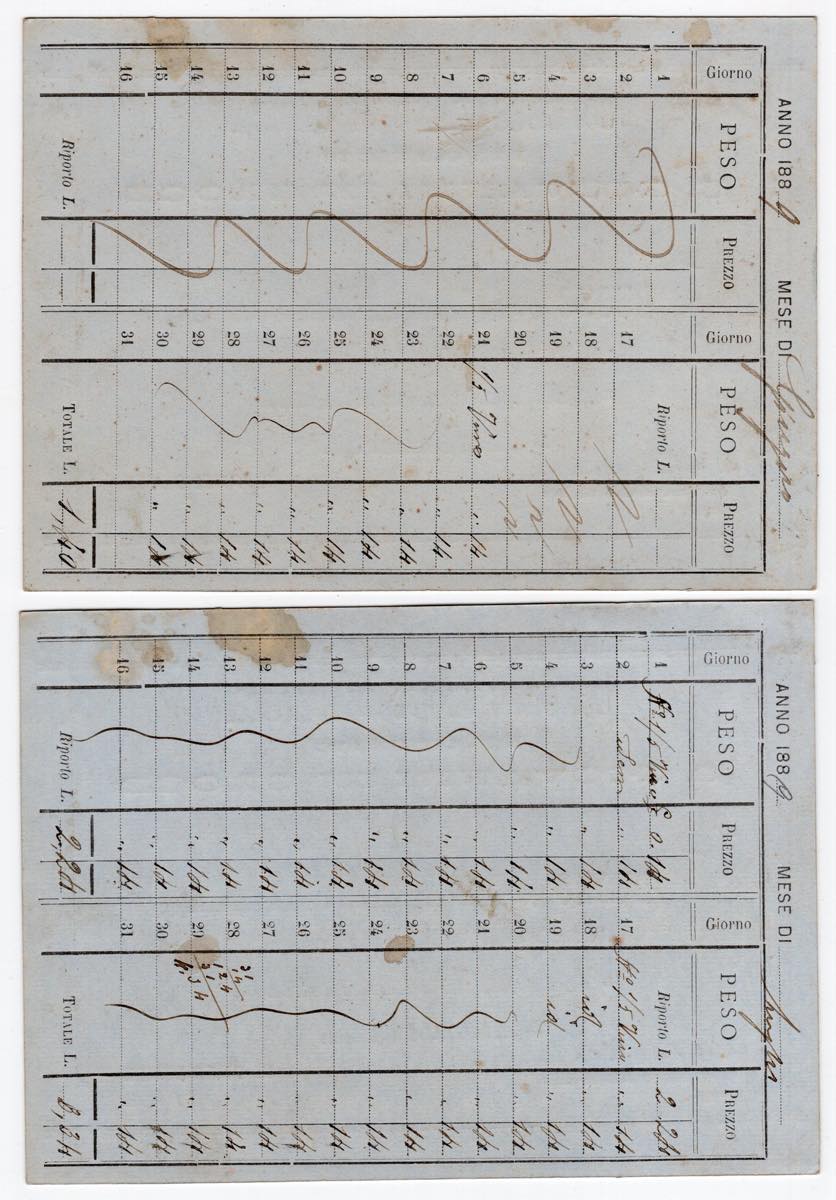 ANNO 1889 MESE DI Giugno
Giorno PESO PREZZO Giorno PESO PREZZO
1 Riporto L.
2 17
3 18
4 19
5 20
6 21 1/5 Vino " 14
7 22 " 14
8 23 " 14
9 24 " 14
10 25 " 14
11 26 " 14
12 27 " 14
13 28 " 14
14 29 " 14
15 30 " 14
16 31
Riporto L. TOTALE L. 1,40
ANNO 1889 MESE DI Luglio
Giorno PESO PREZZO Giorno PESO PREZZO
1 No 1/5 Vino £ 0. 14 Riporto L. 2 24
2 Idem " 14 17 No 1/5 Vino " 14
3 " 14 18 id " 14
4 " 14 19 id " 14
5 " 14 20 " 14
6 " 14 21 " 14
7 " 14 22 " 14
8 " 14 23 " 14
9 " 14 24 " 14
10 " 14 25 " 14
11 " 14 26 " 14
12 " 14 27 " 14
13 " 14 28 " 14
14 " 14 29 " 14
15 " 14 30 " 14
16 " 14 31 " 14
Riporto L. 2,24 TOTALE L. 4,34